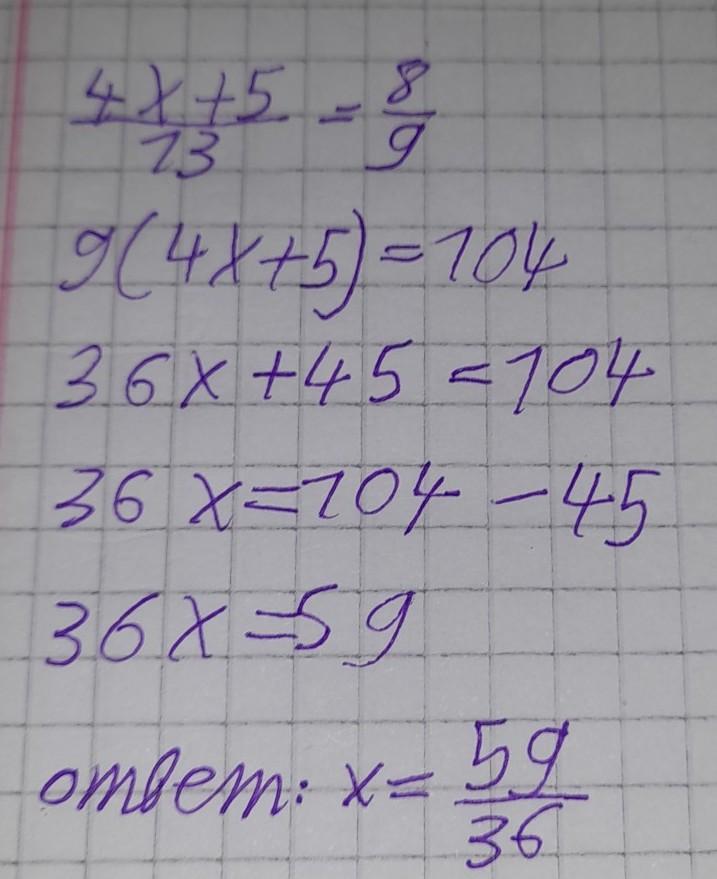 (4x+5)/13 = 8/9
9(4x+5)=104
36x+45=104
36x=104-45
36x=59
ответ: x=59/36